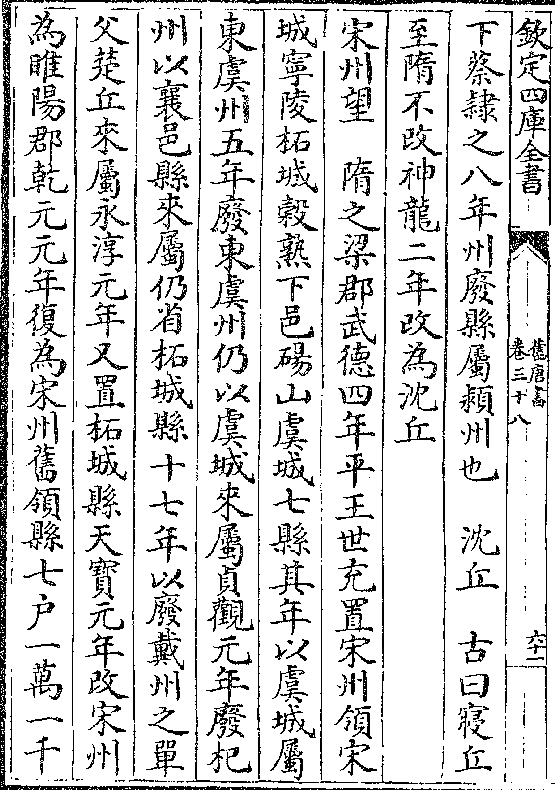 欽定四庫全書
舊唐書
卷三十八
六十二
下蔡隸之八年州廢縣屬潁州也　沈丘　古曰寢丘
至隋不改神龍二年改為沈丘
宋州望　隋之梁郡武德四年平王世充置宋州領宋
城寧陵柘城榖熟下邑碭山虞城七縣其年以虞城屬
東虞州五年廢東虞州仍以虞城來屬貞觀元年廢杞
州以襄邑縣來屬仍省柘城縣十七年以廢戴州之單
父楚丘來屬永淳元年又置柘城縣天寶元年改宋州
為睢陽郡乾元元年復為宋州舊領縣七户一萬一千